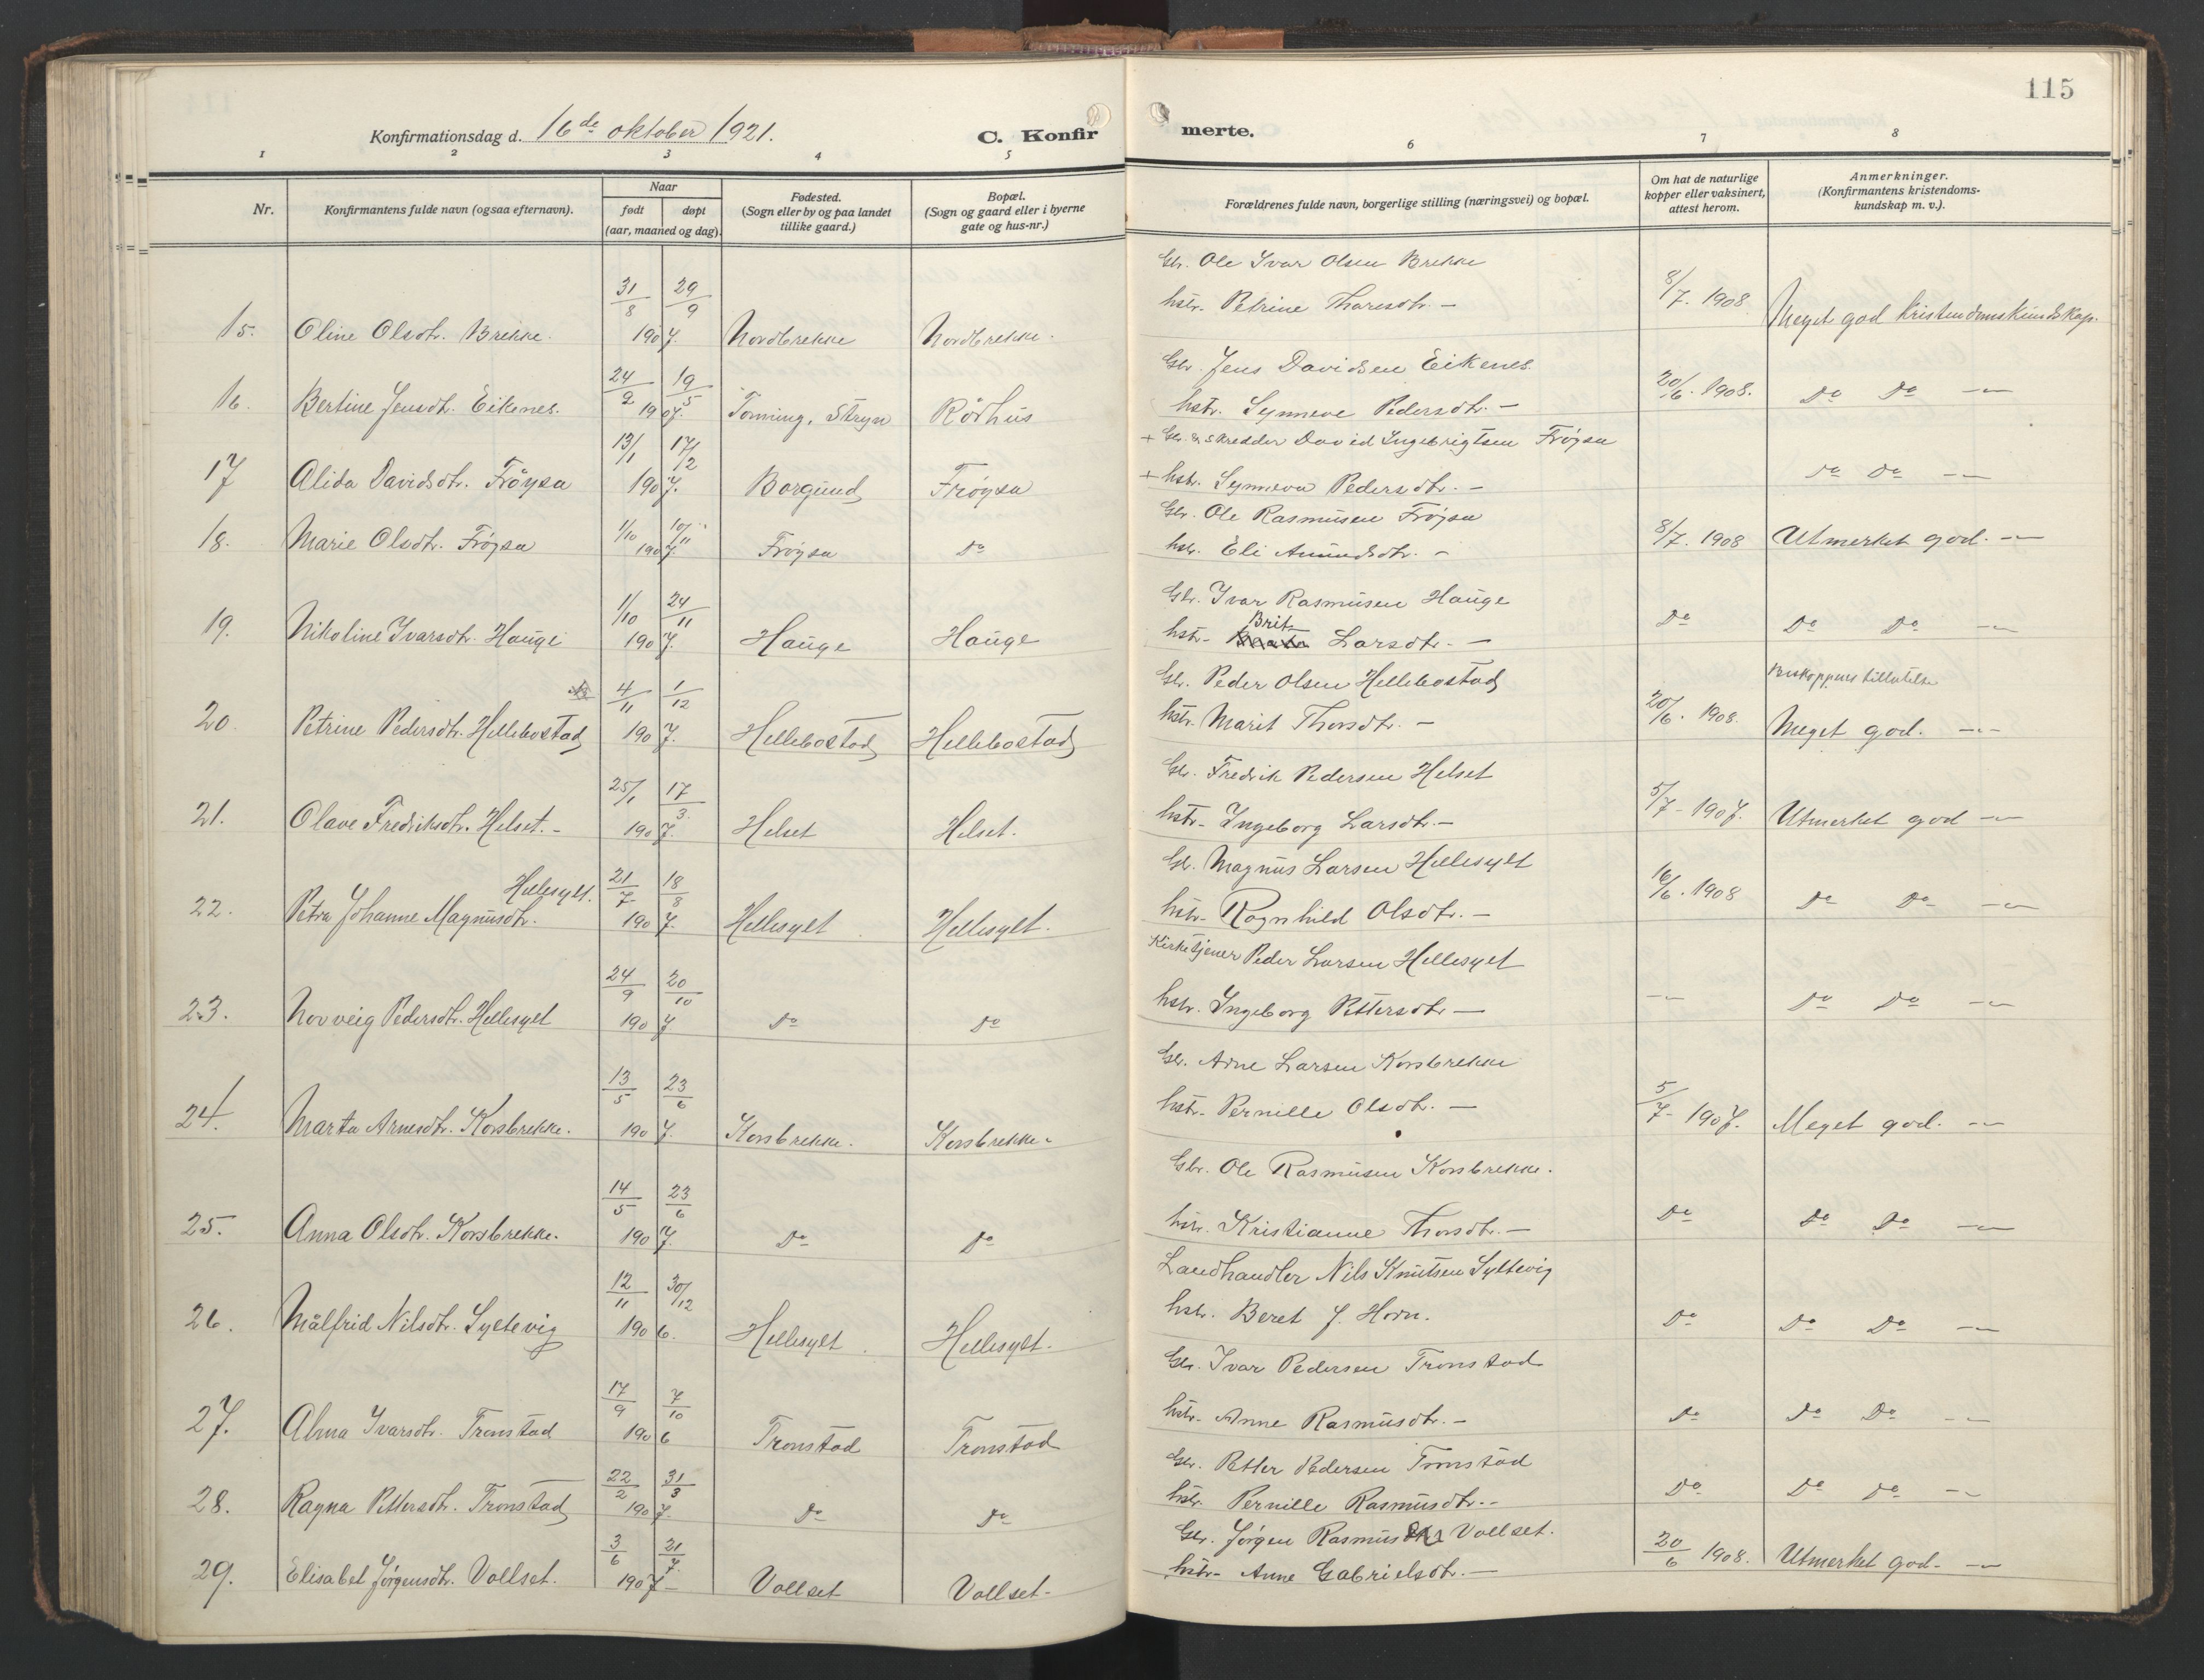 115
Konfirmationsdag d. 16de oktober 1921.
C. Konfirmerte.
1 2 3 4 5 6 7 8
Nr.
Konfirmantens fulde navn (ogsaa efternavn).
Naar
født døpt
(aar, maaned og dag).
Fødested.
(Sogn eller by og paa landet
tillike gaard.)
Bopæl.
(Sogn og gaard eller i byerne
gate og hus-nr.)
Forældrenes fulde navn, borgerlige stilling (næringsvei) og bopæl.
Om hat de naturlige
kopper eller vaksinert,
attest herom.
Anmerkninger.
(Konfirmantens kristendoms-
kundskap m. v.).
Gbr. Ole Ivar Olsen Brekke
15. Oline Olsdtr. Brekke. 31/8 29/9 1907. Nordbrekke Nordbrekke. hstr. Petrine Thoresdtr. — 8/7. 1908 Meget god Kristendomskundskap.
Gbr. Jens Davidsen Eikenes
16. Bertine Jensdt. Eikenes. 24/2 19/5 1907. Tonning, Stryn Rødhus hstr. Synneve Pedersdtr. — 20/6. 1908. Do Do —"—
+ Gbr. & skredder David Ingebrigtsen Frøysa
17 Alida Davidsdtr. Frøysa 13/1 17/2 1907. Borgund Frøysa + hstr. Synneva Pedersdtr. — Do Do —"—
Gbr. Ole Rasmusen Frøysa
18. Marie Olsdtr. Frøysa 1/10 10/11 1907. Frøysa Do hstr. Eli Amundsdtr. — 8/7. 1908 Utmerket god. —"—
Gbr. Ivar Rasmusen Hauge
19. Nikoline Ivarsdtr. Hauge 1/10 24/11 1907. Hauge Hauge hstr. Brit Larsdtr. — Do Do Do —"—
Gbr. Peder Olsen Hellebostad Biskoppens tillatelse
20 Petrine Pedersdtr. Hellebostad 4/11 1/12 1907. Hellebostad Hellebostad hstr. Marit Thorsdtr. — 20/6. 1908. Meget god. —"—
Gbr. Fredrik Pedersen Helset
21. Olave Fredriksdtr. Helset. - 25/1 17/3. 1907. Helset Helset. hstr. Ingeborg Larsdtr. — 5/7 - 1907. Utmerket god —"—
Gbr. Magnus Larsen Hellesylt
22. Petra Johanne Magnusdtr. Hellesylt. 21/7 18/8 1907. Hellesylt Hellesylt. hstr. Ragnhild Olsdtr. — 16/6. 1908 Do Do —"—
Kirketjener Peder Larsen Hellesylt
23. Norveig Pedersdtr. Hellesylt 24/9 20/10 1907 Do Do hstr. Ingeborg Pettersdtr — —"— Do Do —"—
Gbr. Arne Larsen Korsbrekke
24. Marta Arnesdtr. Korsbrekke. 13/5 23/6 1907. Korsbrekke. Korsbrekke. hstr. Pernille Olsdtr. — 5/7 - 1907. Meget god. —"—
Gbr. Ole Rasmusen Korsbrekke.
25. Anna Olsdtr. Korsbrekke. 14/5 23/6 1907. Do Do hstr. Kristianne Thorsdtr. — Do Do Do —"—
Landhandler Nils Knutsen Syltevig
26. Målfrid Nilsdtr. Syltevig 12/11 30/12 1906. Hellesylt Hellesylt. hstr. Beret J. Horn. Do Do Do —"—
Gbr. Ivar Pedersen Tronstad
27. Alma Ivarsdtr. Tronstad 17/9 7/10 1906 Tronstad Tronstad hstr. Anne Rasmusdtr. — Do Do Do —"—
Gbr. Petter Pedersen Tronstad
28. Ragna Pettersdtr. Tronstad 22/2 31/3 1907. Do Do hstr. Pernille Rasmusdtr. — Do Do Do —"—
Gbr. Jørgen Rasmusen Vollset.
29. Elisabet Jørgensdtr. Vollset. 3/6 21/7. 1907 Vollset Vollset. hstr. Anne Gabrielsdtr. — 20/6 1908. Utmerket god. —"—